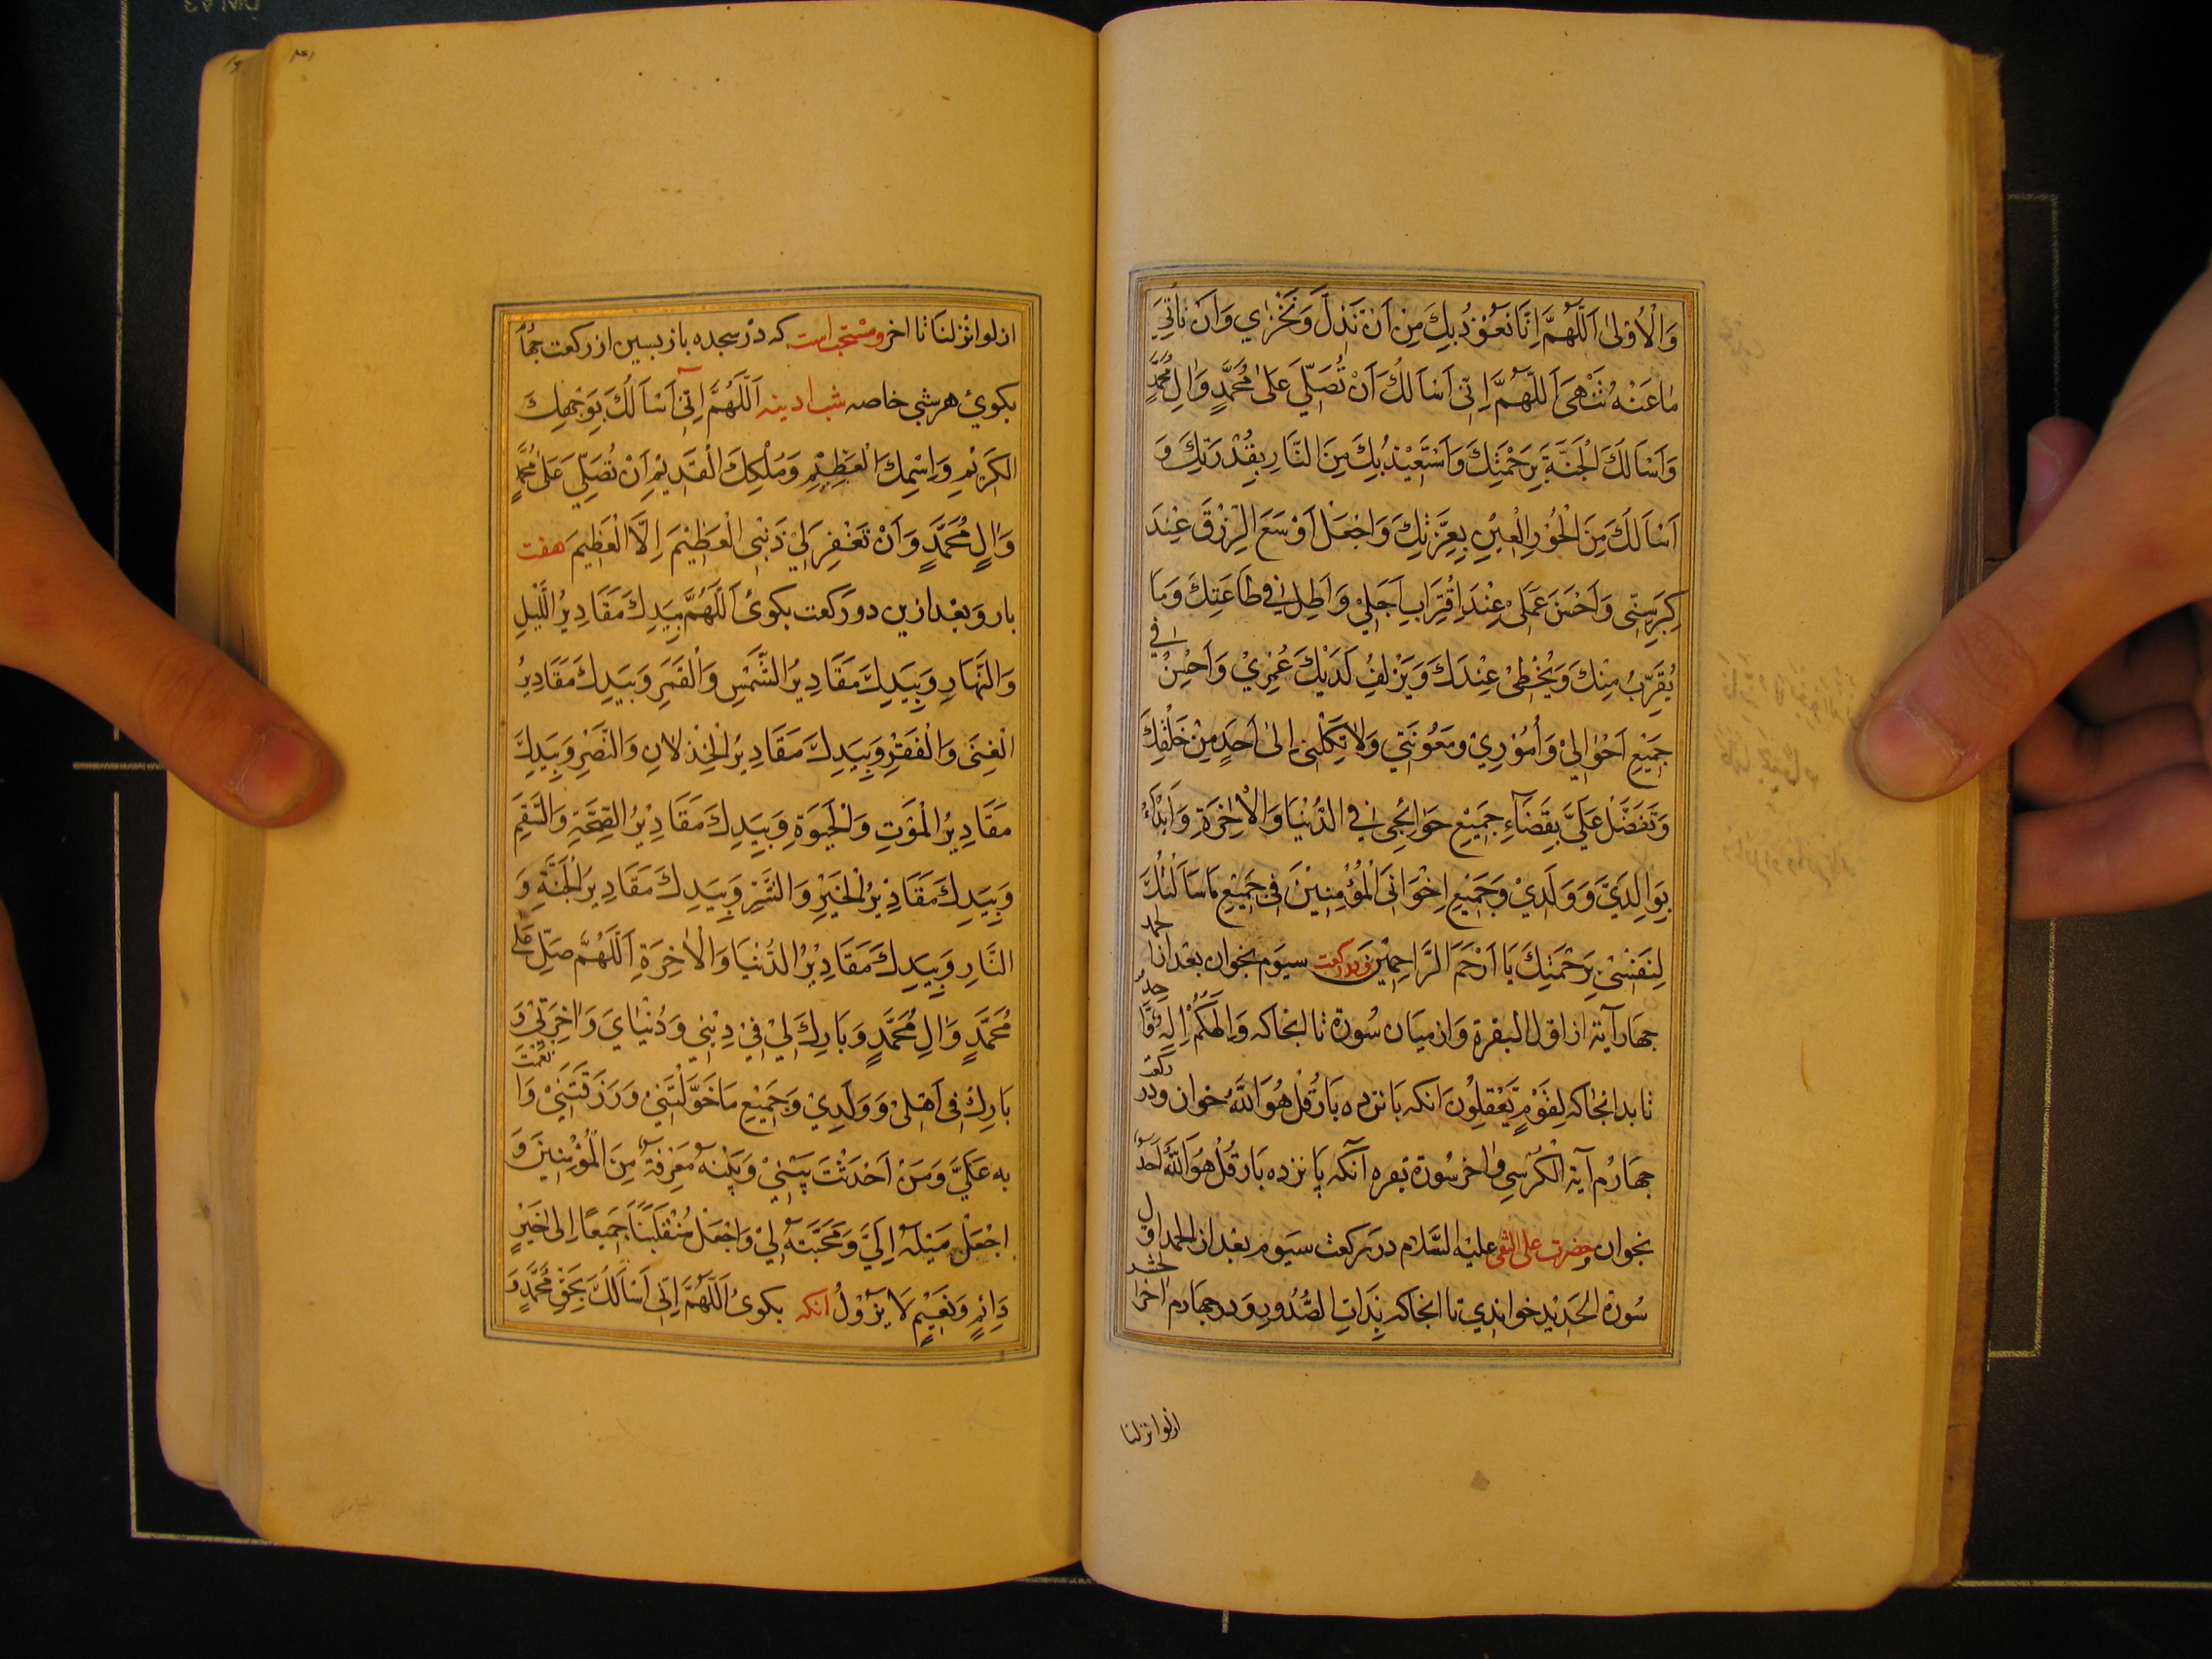 وَالْاُوْلٰى اَللّٰهُمَّ اِنَّا نَعُوْذُ بِكَ مِنْ اَنْ نَذِلَّ وَنَخْزٰي وَاَنْ نَأْتِيَ
مٰا عَنْهُ تَنْهٰى اَللّٰهُمَّ اِنّى اَسْاَلُكَ اَنْ تُصَلِّيَ عَلىٰ مُحَمَّدٍ وَاٰلِ مُحَمَّدٍ
وَاَسْاَلُكَ الْجَنَّةَ بِرَحْمَتِكَ وَاَسْتَعِيْذُ بِكَ مِنَ النَّارِ بِقُدْرَتِكَ وَ
اَسْاَلُكَ مِنَ الْحُوْرِ الْعِيْنِ بِعِزَّتِكَ وَاجْعَلْ اَوْسَعَ الرِّزْقِ عِنْدَ
كِبَرِ سِنّى وَاَحْسَنَ عَمَلىْ عِنْدَ اقْتِرَابِ اَجَلِيْ وَاَطِلْ فِي طَاعَتِكَ وَمَا
يُقَرِّبُ مِنْكَ وَيُحْظىْ عِنْدَكَ وَيُزْلِفُ لَدَيْكَ عُمْرِيْ وَاَحْسِنْ فِي
جَمِيْعِ اَحْوٰالِيْ وَاُمُوْرِيْ وَمَعُوْنَتِي وَلَا تَكِلْنى اِلىٰ اَحَدٍ مِنْ خَلْقِكَ
وَتَفَضَّلْ عَلَيَّ بِقَضَاءِ جَمِيْعِ حَوٰائِجِى فِي الدُّنْيَا وَالْاٰخِرَةِ وَابْدَاءْ
بِوَالِدَيَّ وَوَلَدِيْ وَجَمِيْعِ اِخْوَانِىَ الْمُؤْمِنِيْنَ فِى جَمِيْعِ مٰا سَاَلْتُكَ
لِنَفْسْى بِرَحْمَتِكَ يَا اَرْحَمَ الرَّاحِمِيْنَ ودر ركعت سيوم بخوان بعد از الحمد
چهار آية از اول البقرة واز ميان سورة تا انجاكه وَاِلٰهُكُمْ اِلٰهٌ وَّاحِدٌ
تا بدانجاكه لِقَوْمٍ يَّعْقِلُونَ انكه پانزده بار قُلْ هُوَ اللّٰهُ خوان ودر ركعت
چهارم آية الكُرْسِي واخر سُورة بقره آنكه پانزده بار قُلْ هُوَ اللّٰهُ اَحَدٌ
بخوان وحضرت على النقى عليه السَّلام در ركعت سيوم بعد از الحمد اول
سُورة الحَديد خواندي تا انجاكه بِذَاتِ الصُّدُورِ ودر چهارم اخر الحشر
از لو انزلنا
از لو انزلنَا تا اخر ومستحب است كه در سجده باز پسين از ركعت
بكوئ هر شبي خاصه شب ادينه اَللّٰهُمَّ اِنّىْ اَسْاَلُكَ بِوَجْهِكَ
الكَرِيْمِ وَاسْمِكَ الْعَظِيْمِ وَمُلْكِكَ الْقَدِيْمِ اَنْ تُصَلِّيَ عَلىٰ مُحَمَّدٍ
وَاٰلِ مُحَمَّدٍ وَاَنْ تَغْفِرَ لِيْ ذَنْبِى الْعَظِيْمَ اِلَّا الْعَظِيْمَ هفت
بار وبعد ازين دو ركعت بكوئ اَللّٰهُمَّ بِيَدِكَ مَقَادِيْرُ اللَّيْلِ
وَالنَّهَارِ وَبِيَدِكَ مَقَادِيْرُ الشَّمْسِ وَالْقَمَرِ وَبِيَدِكَ مَقَادِيْرُ
الْغِنٰى وَالْفَقْرِ وَبِيَدِكَ مَقَادِيْرُ الْخِذْلَانِ وَالنَّصْرِ وَبِيَدِكَ
مَقَادِيْرُ الْمَوْتِ وَالْحَيٰوةِ وَبِيَدِكَ مَقَادِيْرُ الصِّحَّةِ وَالسَّقَمِ
وَبِيَدِكَ مَقَادِيْرُ الْخَيْرِ وَالشَّرِّ وَبِيَدِكَ مَقَادِيْرُ الْجَنَّةِ وَ
النَّارِ وَبِيَدِكَ مَقَادِيْرُ الدُّنْيَا وَالْاٰخِرَةِ اَللّٰهُمَّ صَلِّ عَلىٰ
مُحَمَّدٍ وَاٰلِ مُحَمَّدٍ وَبَارِكْ لِيْ فِيْ دِيْنِي وَدُنْيَايَ وَاٰخِرَتِيْ وَ
بَارِكْ فِى اَهْلىْ وَوَلَدِيْ وَجَمِيْعِ مَا خَوَّلْتَنِيْ وَرَزَقْتَنِيْ وَاَنْعَمْتَ
بِهِ عَلَيَّ وَمَنْ اَحْدَثْتَ بَيْنِيْ وَبَيْنَهُ مَعْرِفَةً مِنَ الْمُؤْمِنِيْنَ وَ
اجْعَلْ مَيْلَهُ اِلَيَّ وَمَحَبَّتَهُ لِيْ وَاجْعَلْ مُنْقَلَبَنَا جَمِيْعًا اِلىٰ خَيْرٍ
دَائِمٍ وَنَعِيْمٍ لَا يَزُوْلُ انكه بكوئ اَللّٰهُمَّ اِنّى اَسْاَلُكَ بِحَقِّ مُحَمَّدٍ وَ